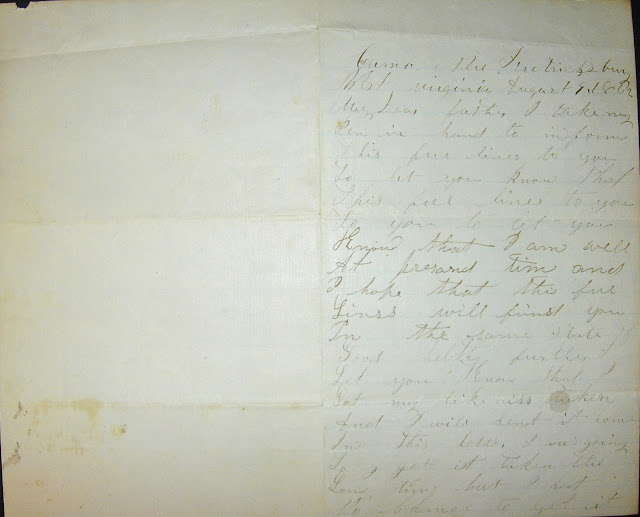 Camp Near Fredricksburg
West virginia August 9 1862
My Dear father I take my
Pen in hand to inform
this fue lines to you
to let you know that
this fue lines to you
to you to let you
Know that I am well
At presand tim and
I hope that this fue
Lines will find you
In the same state of
Good helth further I
Let you Know that I
Got my likeniss taken
And I will send it
In this letter I was going
To get it taken this
Long time but I
chance to get it